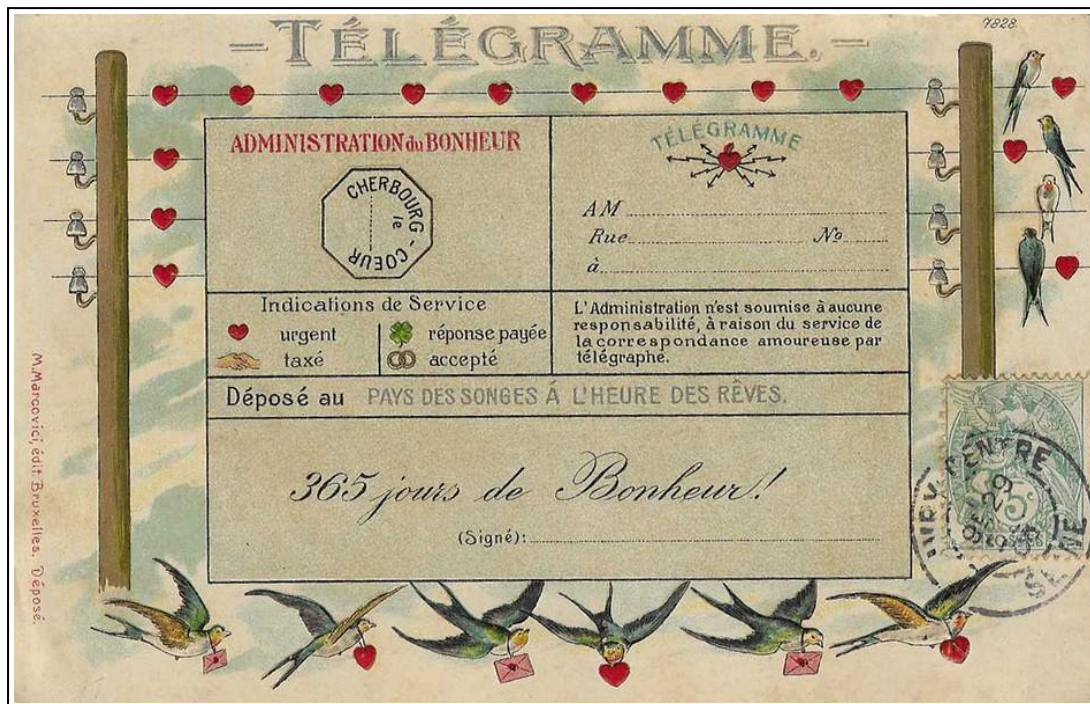 7828
-TÉLÉGRAMME.-
ADMINISTRATION du BONHEUR
CHERBOURG - COEUR
le
TÉLÉGRAMME
AM
Rue No
à
Indications de Service
urgent
réponse payée
taxé
accepté
L'Administration n'est soumise à aucune
responsabilité, à raison du service de
la correspondance amoureuse par
télégraphe.
Déposé au PAYS DES SONGES Á L'HEURE DES RÊVES.
365 jours de Bonheur!
(Signé):
M. Marcovici, édit. Bruxelles. Déposé.
CENTRE
29
5c
SEINE